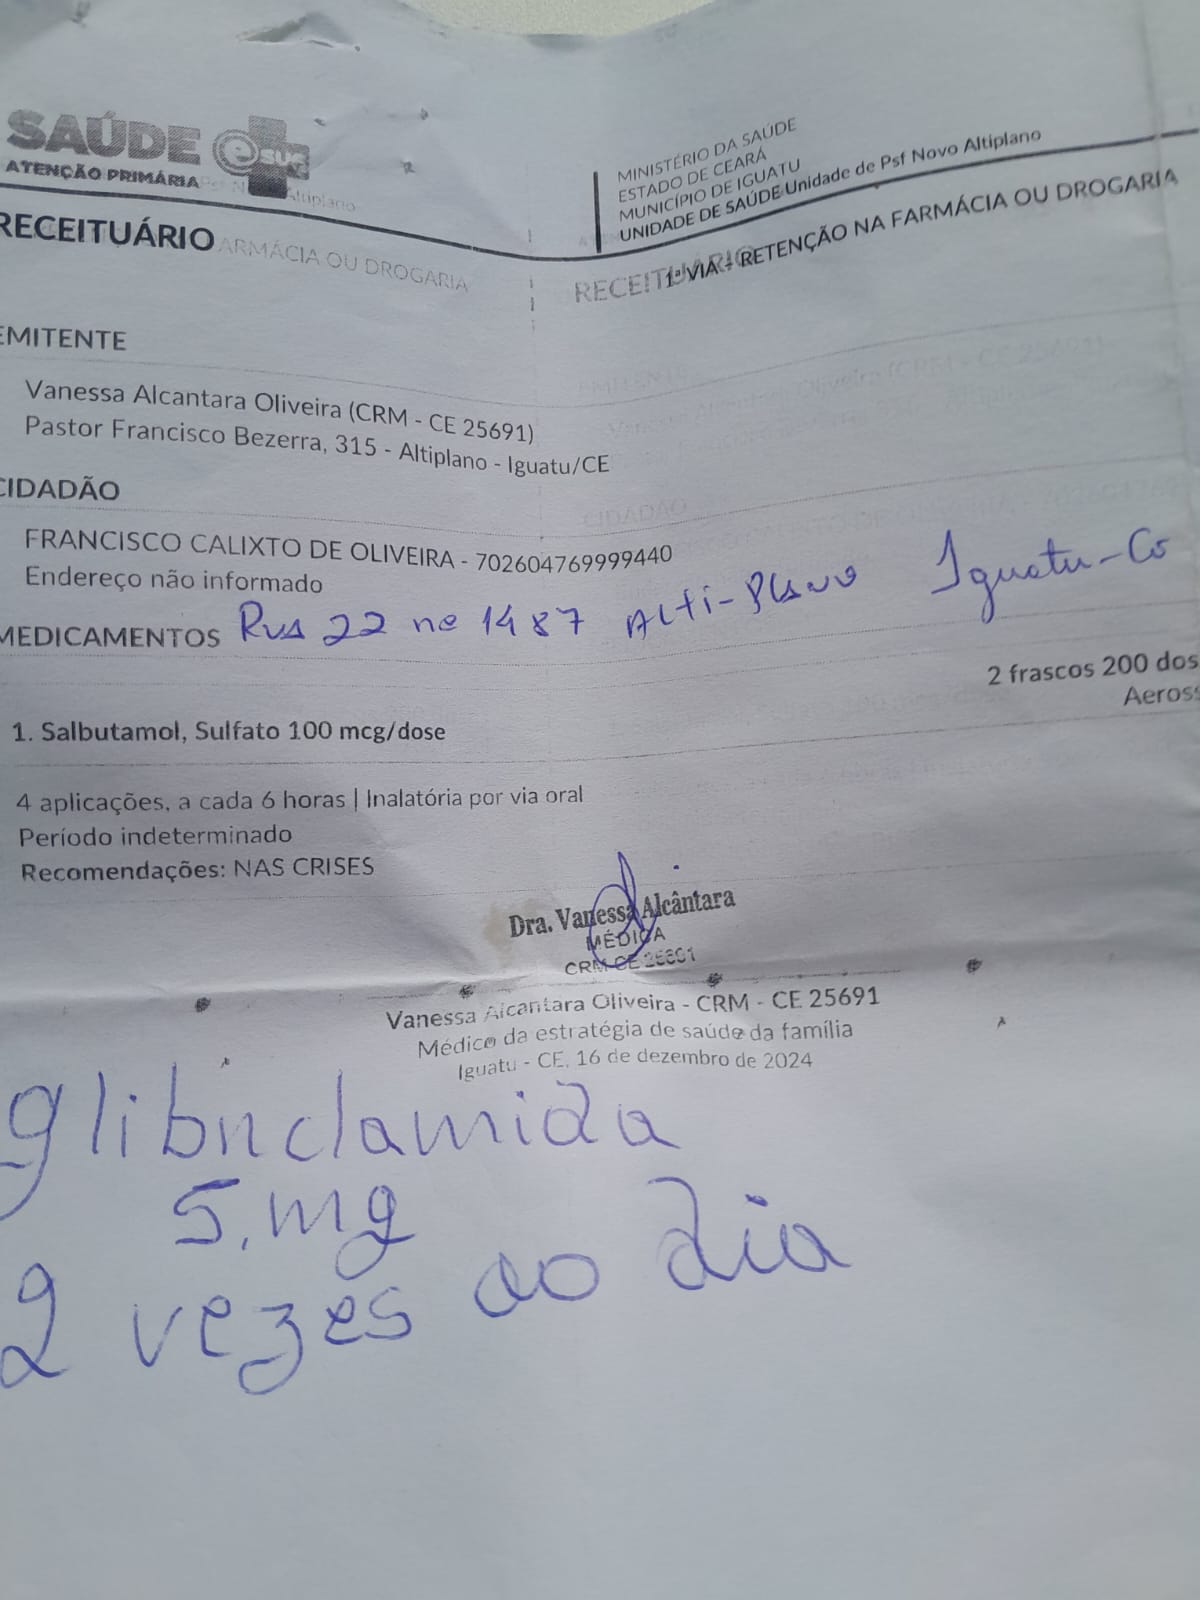 SAÚDE e SUS
ATENÇÃO PRIMÁRIA
Altiplano
MINISTÉRIO DA SAÚDE
ESTADO DE CEARÁ
MUNICÍPIO DE IGUATU
UNIDADE DE SAÚDE Unidade de Psf Novo Altiplano
RECEITUÁRIO
ARMÁCIA OU DROGARIA
RECEITUÁRIO
1ª VIA - RETENÇÃO NA FARMÁCIA OU DROGARIA
EMITENTE
Vanessa Alcantara Oliveira (CRM - CE 25691)
Pastor Francisco Bezerra, 315 - Altiplano - Iguatu/CE
CIDADÃO
CIDADÃO
FRANCISCO CALIXTO DE OLIVEIRA - 702604769999440
Endereço não informado
MEDICAMENTOS
Rua 22 no 1487 Alti-Plano Iguatu-Ce
2 frascos 200 dos
Aeross
1. Salbutamol, Sulfato 100 mcg/dose
4 aplicações, a cada 6 horas | Inalatória por via oral
Período indeterminado
Recomendações: NAS CRISES
Dra. Vanessa Alcântara
MÉDICA
CRM CE 25691
Vanessa Alcantara Oliveira - CRM - CE 25691
Médico da estratégia de saúde da família
Iguatu - CE, 16 de dezembro de 2024
glibnclamida
5.mg
2 vezes ao dia